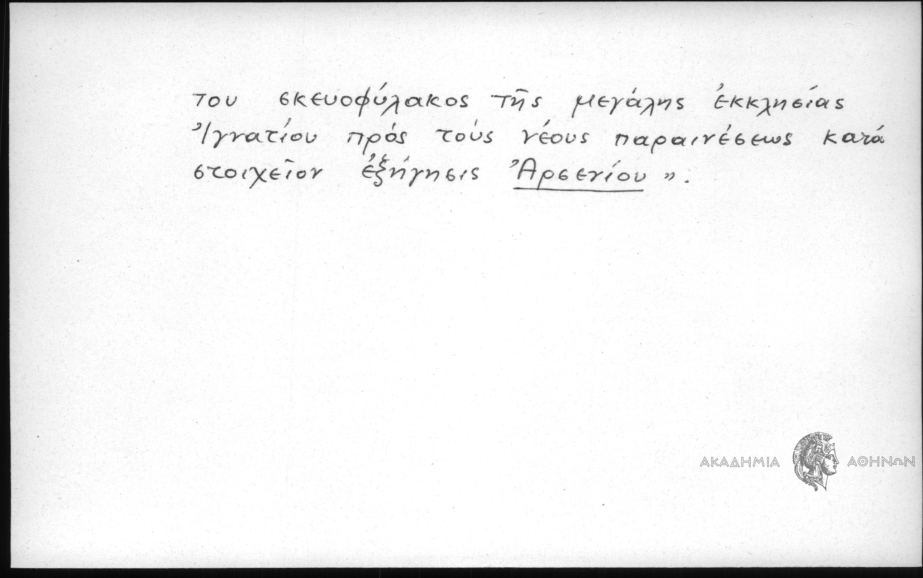 του σκευοφύλακος τῆς μεγάλης ἐκκλησίας
Ἰγνατίου πρός τούς νέους παραινέσεως κατά
στοιχεῖον ἐξήγησις Ἀρσενίου ».
ΑΚΑΔΗΜΙΑ ΑΘΗΝΩΝ